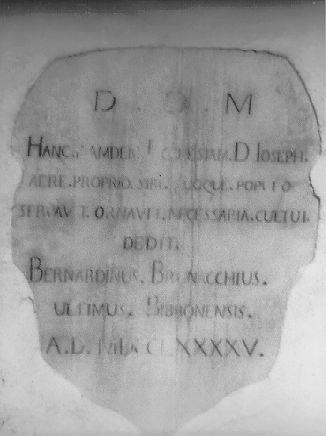 D. O. M
HANC. EAMDEM. ECCLESIAM. D IOSEPH.
AERE. PROPRIO. SIBI. QUOQUE. POPULO
SERVAVIT. ORNAVIT. NECESSARIA. CULTUI.
DEDIT.
BERNARDINUS. BRUNACCHIUS.
ULTIMUS. BIBBONENSIS.
A. D.